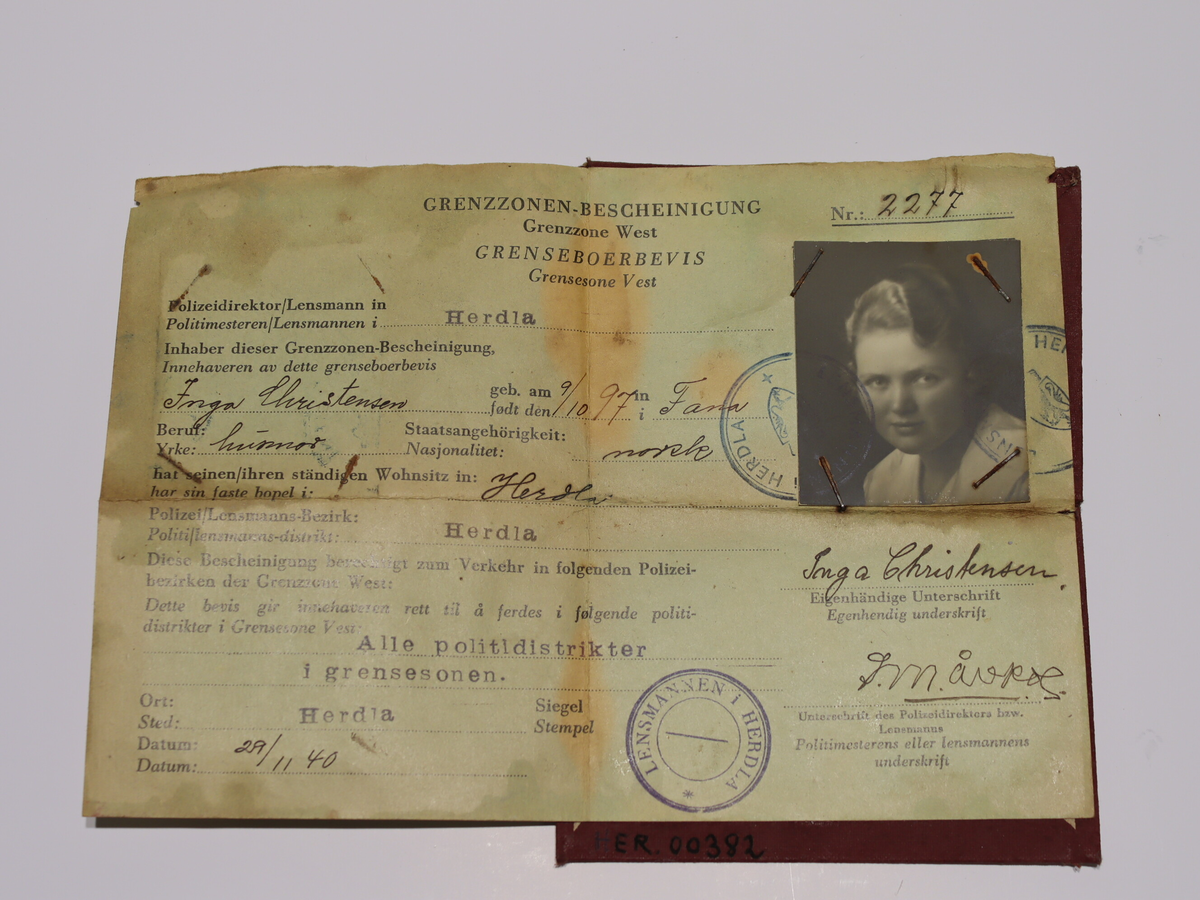 GRENZZONEN-BESCHEINIGUNG
Grenzzone West
GRENSEBOERBEVIS
Grensesone Vest
Nr.: 2277
Polizeidirektor/Lensmann in
Politimesteren/Lensmannen i Herdla
Inhaber dieser Grenzzonen-Bescheinigung,
Innehaveren av dette grenseboerbevis
Inga Christensen geb. am født den 9/10 97 in i Fana
Beruf: Staatsangehörigkeit:
Yrke: husmor Nasjonalitet: norsk
hat seinen/ihren ständigen Wohnsitz in:
har sin faste bopel i: Herdla
Polizei/Lensmanns-Bezirk:
Politi/lensmanns-distrikt: Herdla
Diese Bescheinigung berechtigt zum Verkehr in folgenden Polizei-
bezirken der Grenzzone West:
Dette bevis gir innehaveren rett til å ferdes i følgende politi-
distrikter i Grensesone Vest:
Alle politidistrikter
i grensesonen.
Ort: Siegel
Sted: Herdla Stempel
Datum:
Datum: 29/11 40
LENSMANNEN i HERDLA
HERDLA
HER
Inga Christensen
Eigenhändige Unterschrift
Egenhendig underskrift
Unterschrift des Polizeidirektors bzw.
Lensmanns
Politimesterens eller lensmannens
underskrift
HER. 00382